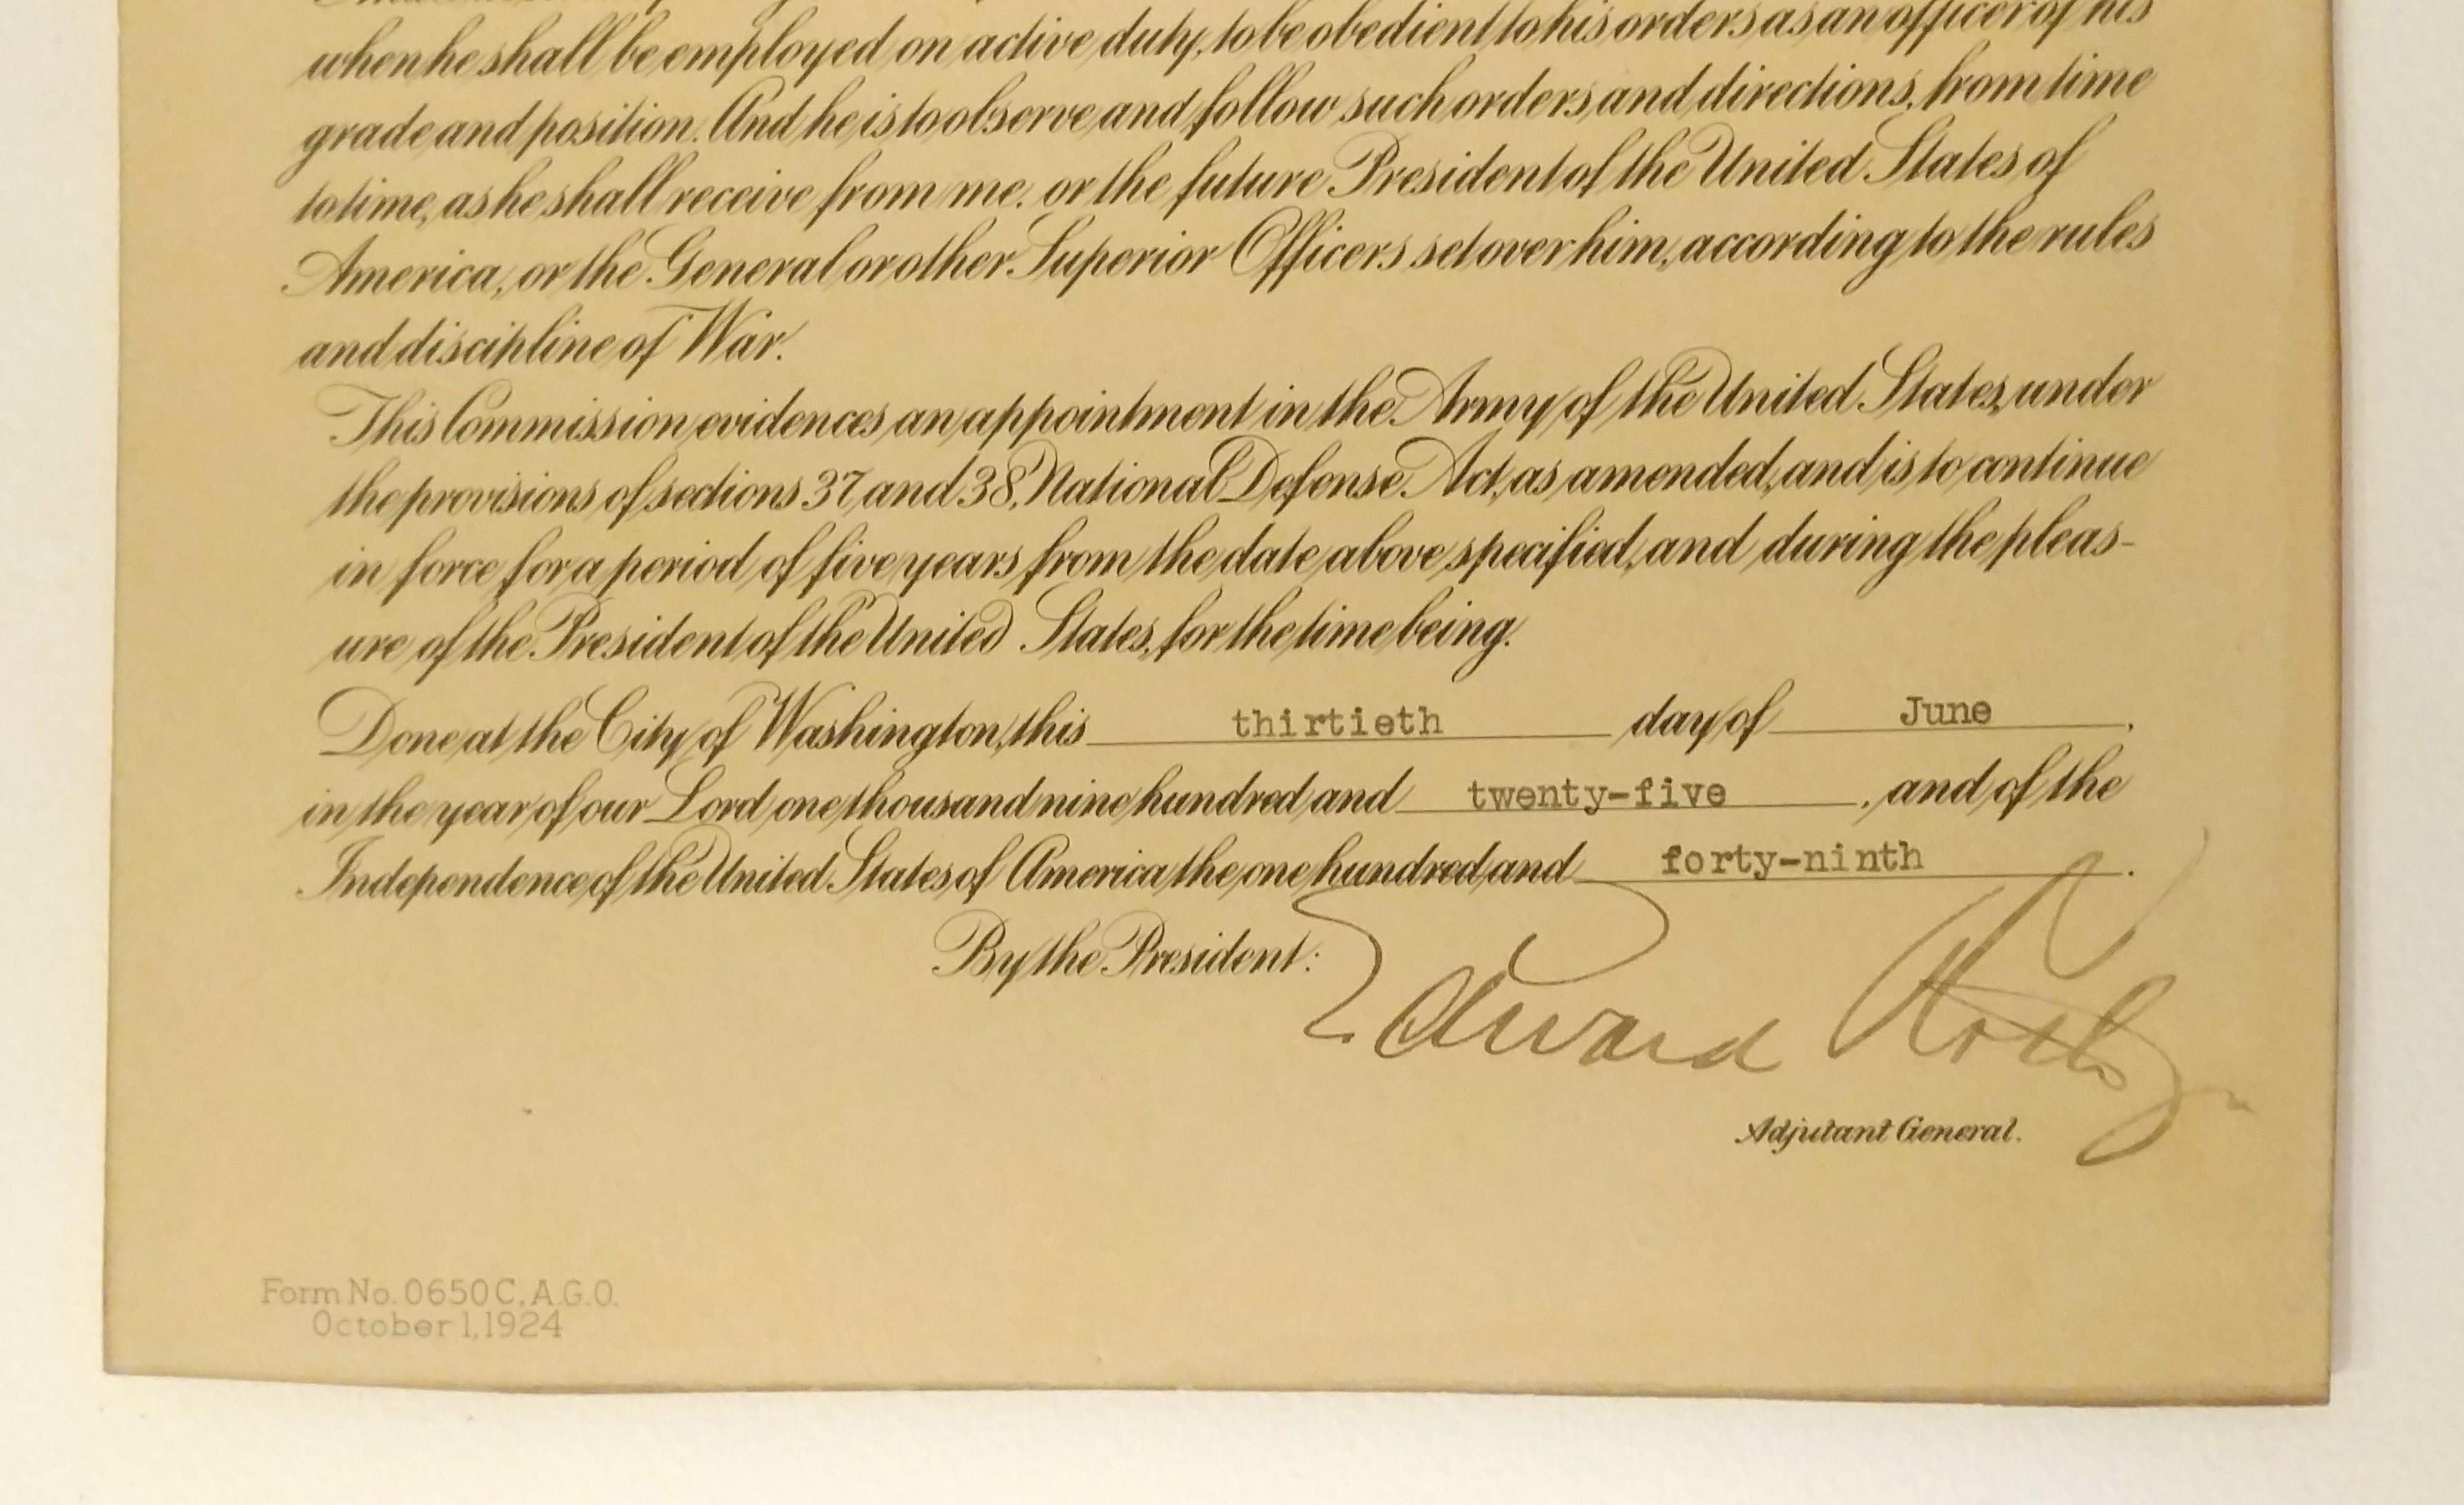 when he shall be employed on active duty, to be obedient to his orders as an officer of his
grade and position. And he is to observe and follow such orders and directions, from time
to time, as he shall receive from me, or the future President of the United States of
America, or the General or other Superior Officers set over him, according to the rules
and discipline of War.
This Commission evidences an appointment in the Army of the United States, under
the provisions of sections 37 and 38, National Defense Act, as amended, and is to continue
in force for a period of five years from the date above specified, and during the pleas-
ure of the President of the United States, for the time being.
Done at the City of Washington, this thirtieth day of June,
in the year of our Lord one thousand nine hundred and twenty-five, and of the
Independence of the United States of America the one hundred and forty-ninth.
By the President:
Edward
Adjutant General.
Form No. 0650 C, A.G.O.
October 1, 1924